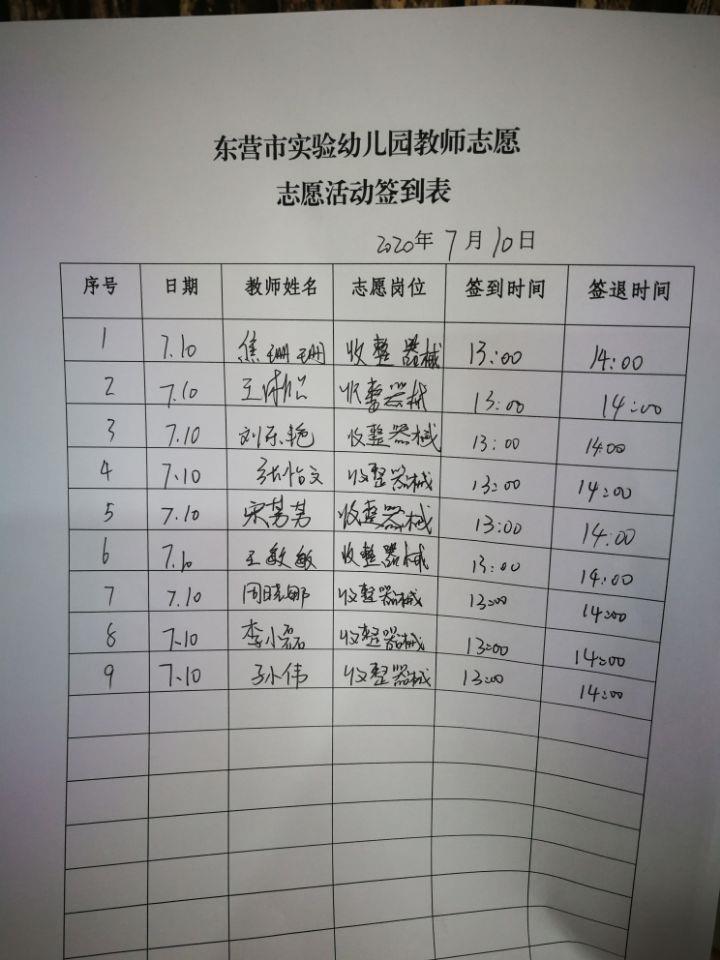 东营市实验幼儿园教师志愿
志愿活动签到表
2020年 7月10日
序号 日期 教师姓名 志愿岗位 签到时间 签退时间
1 7.10 焦珊珊 收整器械 13:00 14:00
2 7.10 王 收整器械 13:00 14:00
3 7.10 刘乐艳 收整器械 13:00 14:00
4 7.10 张怡文 收整器械 13:00 14:00
5 7.10 宋男男 收整器械 13:00 14:00
6 7.10 王敏敏 收整器械 13:00 14:00
7 7.10 周晓娜 收整器械 13:00 14:00
8 7.10 李小磊 收整器械 13:00 14:00
9 7.10 孙小伟 收整器械 13:00 14:00